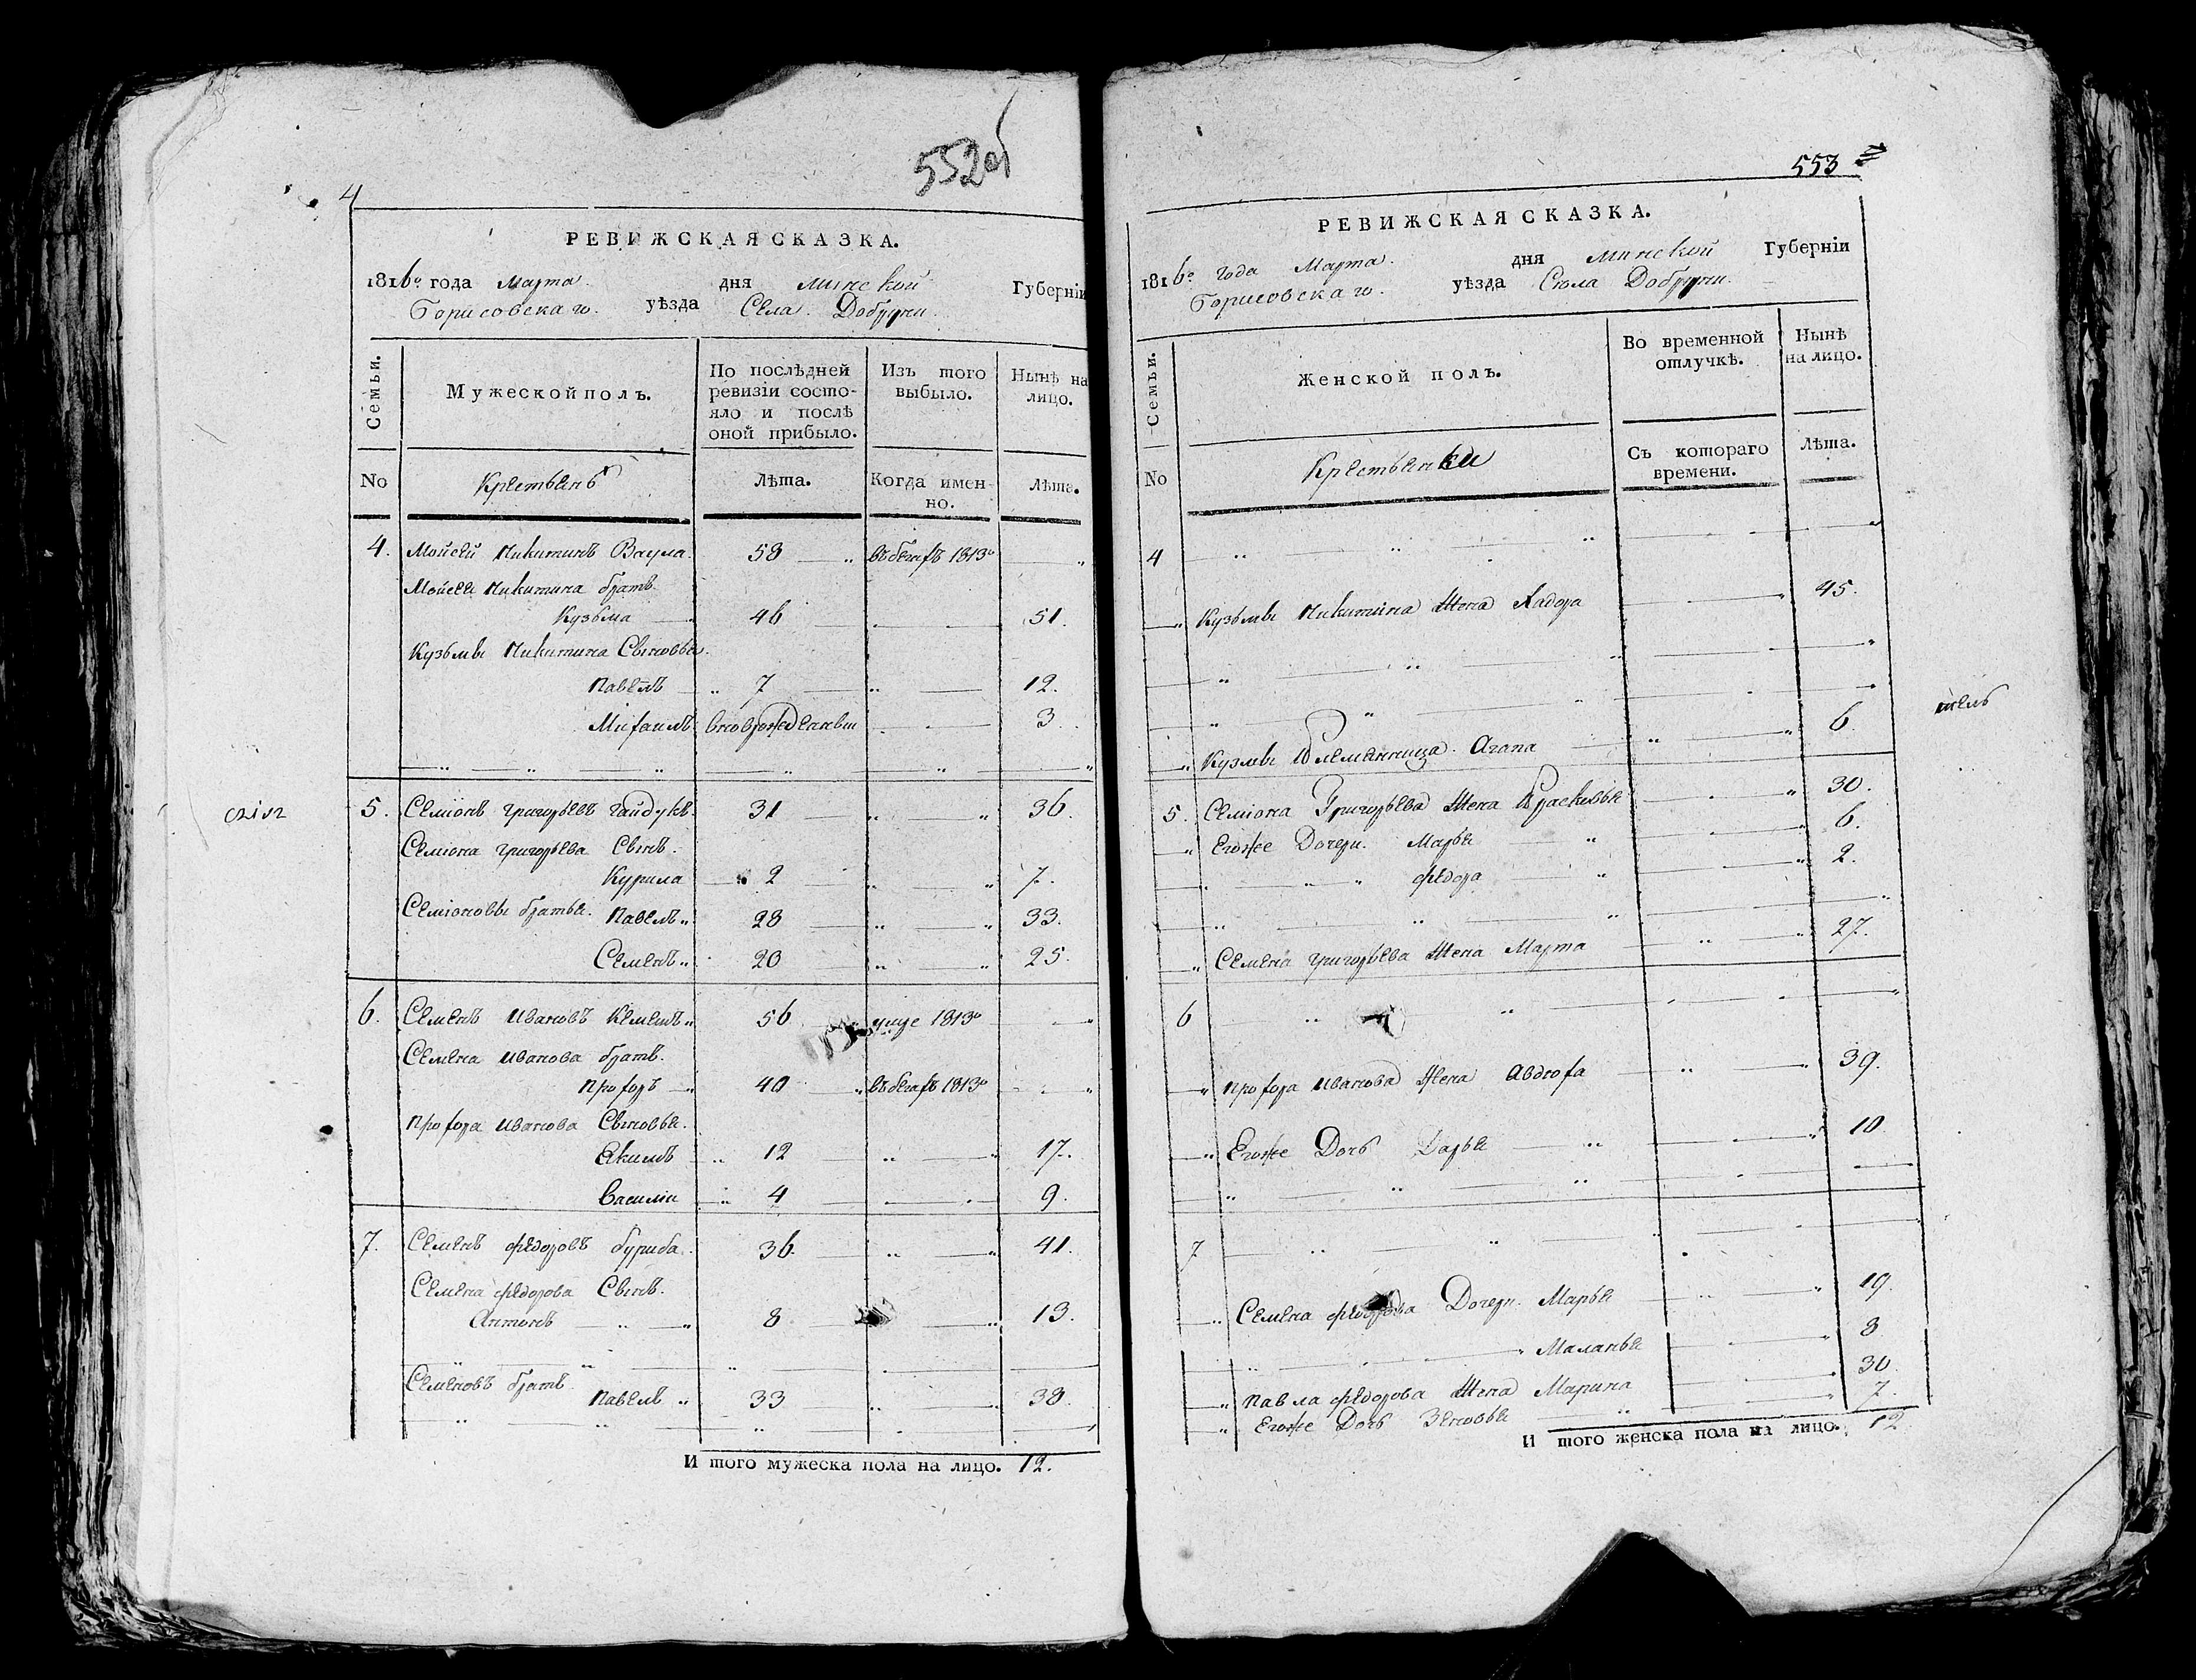 4
552об
РЕВИЖСКАЯ СКАЗКА.
1816го года Марта дня Минской Губерніи
Борисовскаго уѣзда Села Добруни.
Семьи.
Мужеской полъ.
По послѣдней ревизіи состояло и послѣ оной прибыло.
Изъ того выбыло.
Нынѣ на лицо.
No
Крестьянъ
Лѣта.
Когда именно.
Лѣта.
4. Мойсей Никитинъ Ваула. 58 въ бегахъ 1813о
Мойсея Никитина братъ
Кузьма 46 51.
Кузьмы Никитина Сыновья.
Павелъ 7 12.
Михаилъ вновьрожденный 3.
5. Семіонъ Григорьевъ Гайдукъ. 31 36.
Семіона Григорьева Сынъ.
Курила 2 7.
Семіоновы братья. Павелъ 28 33.
Семенъ 20 25.
6. Семенъ Ивановъ 56 умре 1813о
Семена Иванова братъ.
Прохоръ 40 въ бегахъ 1813о
Прохора Иванова Сыновья.
Якимъ 12 17.
Василіи 4 9.
7. Семенъ Федоровъ буриба. 36. 41.
Семена Федорова Сынъ.
Антонъ 8 13.
Семеновъ братъ
Павелъ 33 38.
И того мужеска пола на лицо. 12.
553
РЕВИЖСКАЯ СКАЗКА.
1816го года Марта. дня Минской Губерніи
Борисовскаго. уѣзда Сюла Добруни.
Семьи.
Женской полъ.
Во временной отлучкѣ.
Нынѣ на лицо.
No
Крестьянки
Съ котораго времени.
Лѣта.
4
Кузьмы Никитина Жена Хадора 45.
Кузмы Племянница Агапа 6.
5. Семіона Григорьева Жена Прасковья 30.
Егоже Дочери. Марья 6.
Федора 2.
Семена Григорьева Жена Марта 27.
6
Прохора Иванова Жена Авдюха 39.
Егоже Дочь Дарья 10
7
Семена Федорова Дочери. Марья 19.
Маланья 8
Павла Федорова Жена Марина 30.
Егоже Дочь Зеновья 7.
И того женска пола на лицо. 12